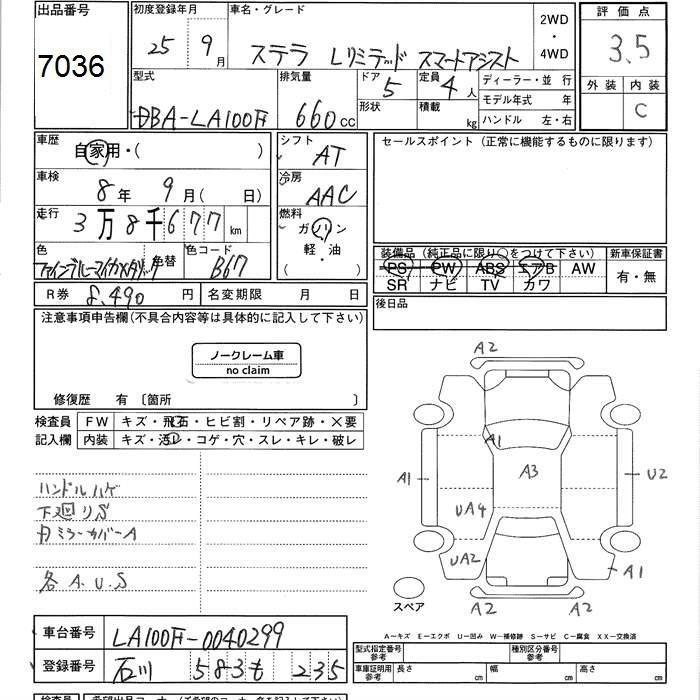 出品番号 初度登録年月 車名・グレード 2WD ・ 4WD 評価点
7036 25 9月 ステラ Lリミテッド スマートアシスト 3.5
型式 排気量 ドア 5 定員 4人 ディーラー・並 行 外装 内装
DBA-LA100F 660cc 形状 積載 kg モデル年式 年 C
ハンドル 左・右
車歴 自家用・( ) シフト AT セールスポイント (正常に機能するものに限ります)
車検 8年 9月( 日) 冷房 AAC
走行 3万8千677km 燃料 ガソリン 軽・油 ・( )
色 色替 色コード B67
装備品 (純正品に限り○をつけて下さい) 新車保証書
PS PW ABS エアB AW 有・無
SR ナビ TV カワ
R券 8,490 円 名変期限 月 日 後日品
注意事項申告欄(不具合内容等は具体的に記入して下さい)
ノークレーム車
no claim
修復歴 有 〔箇所 〕
検査員 FW キズ・飛石・ヒビ割・リペア跡・×要
記入欄 内装 キズ・汚レ・コゲ・穴・スレ・キレ・破レ
ハンドルハゲ
下廻りS
ミラーカバーA
各A.U.S
A2
A1
A1 A3 U2
UA4
UA2 A1
A2 A2
スペア
A〜キズ E〜エクボ U〜凹み W〜補修跡 S〜サビ C〜腐食 XX〜交換済
車台番号 LA100F-0040299
登録番号 石川 583 も 235
型式指定番号 参考 種別区分番号 参考
車庫証明用 参考 長さ cm 幅 cm 高さ cm